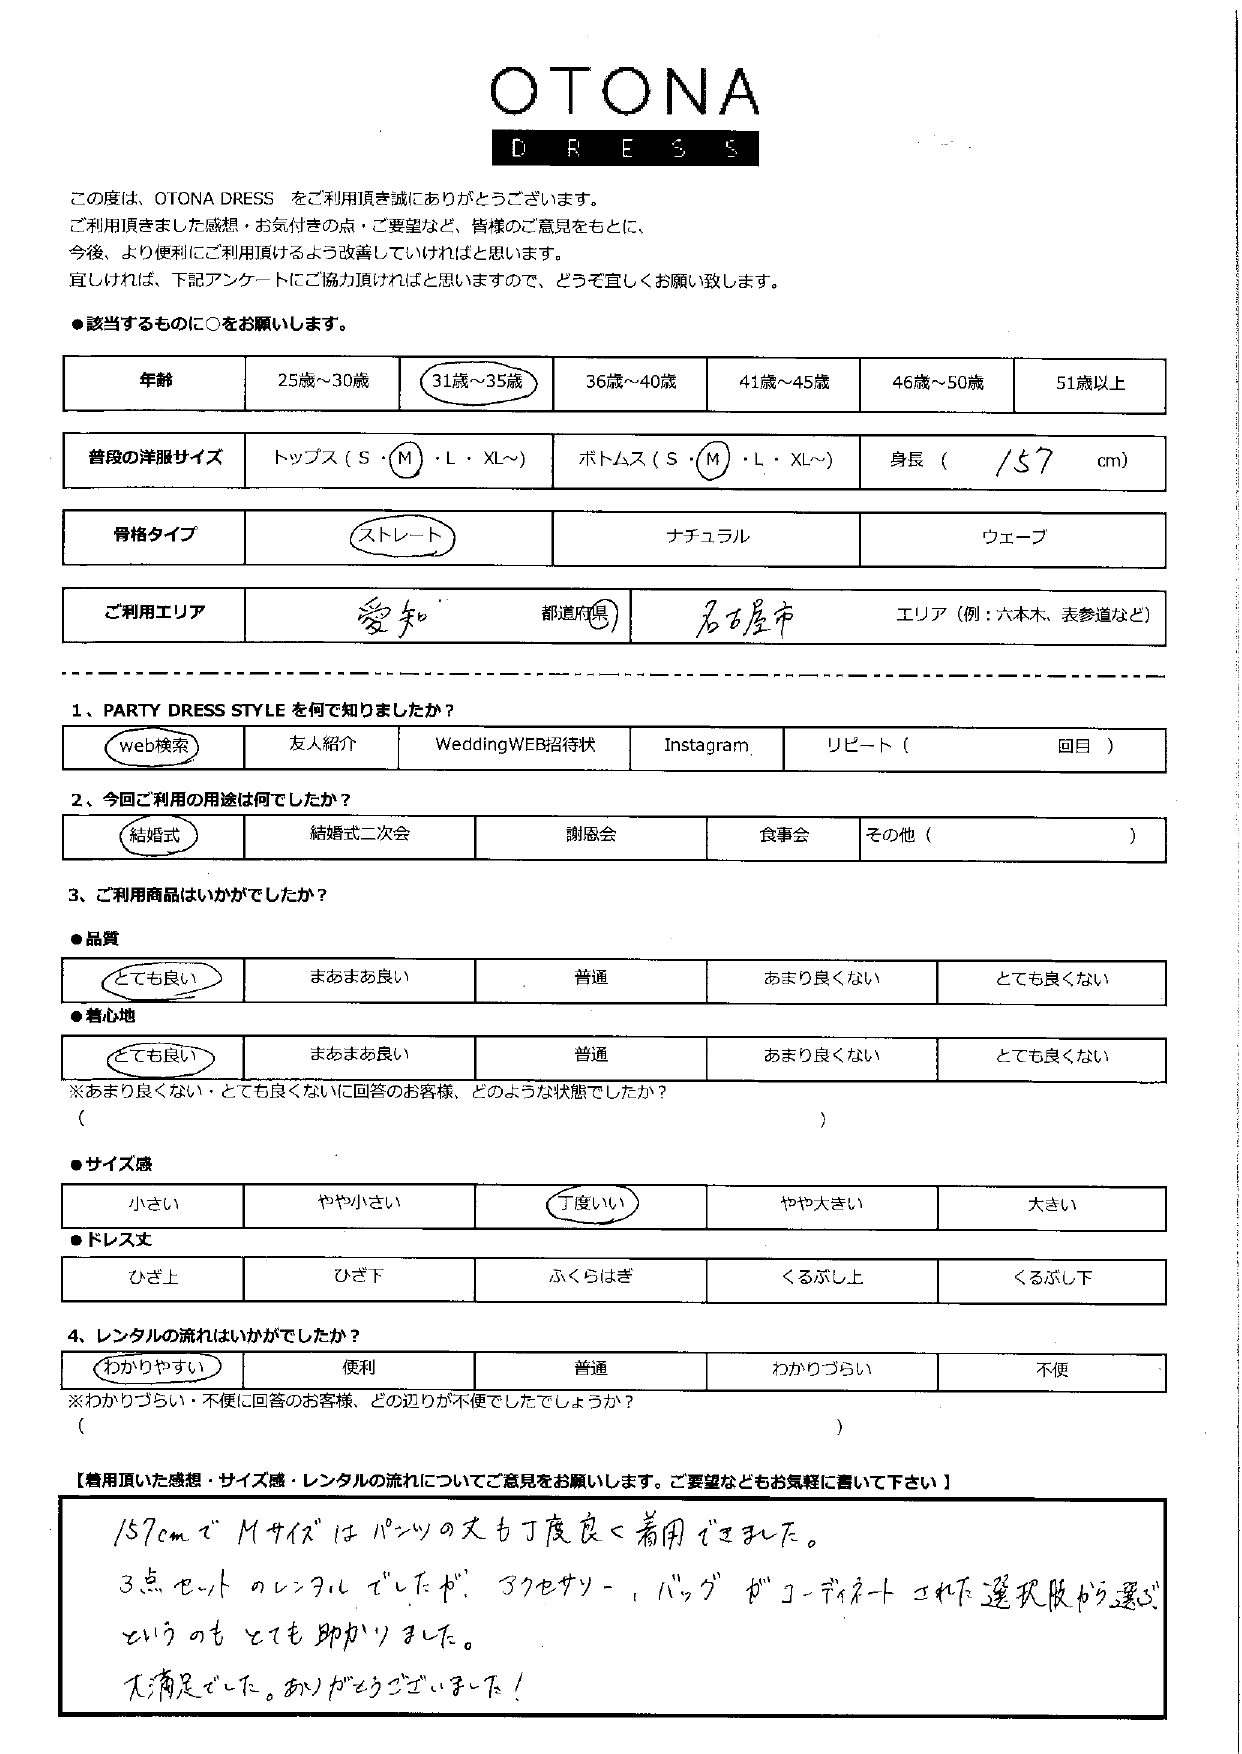 OTONA
DRESS
この度は、OTONA DRESS　をご利用頂き誠にありがとうございます。
ご利用頂きました感想・お気付きの点・ご要望など、皆様のご意見をもとに、
今後、より便利にご利用頂けるよう改善していければと思います。
宜しければ、下記アンケートにご協力頂ければと思いますので、どうぞ宜しくお願い致します。
●該当するものに○をお願いします。
年齢 25歳～30歳 31歳～35歳 36歳～40歳 41歳～45歳 46歳～50歳 51歳以上
普段の洋服サイズ トップス ( S ・M ・L ・ XL～) ボトムス ( S ・M ・L ・ XL～) 身長 ( 157 cm)
骨格タイプ ストレート ナチュラル ウェーブ
ご利用エリア 愛知 都道府県 名古屋市 エリア（例：六本木、表参道など）
1、PARTY DRESS STYLE を何で知りましたか？
web検索 友人紹介 WeddingWEB招待状 Instagram リピート ( 回目 )
2、今回ご利用の用途は何でしたか？
結婚式 結婚式二次会 謝恩会 食事会 その他 ( )
3、ご利用商品はいかがでしたか？
●品質
とても良い まあまあ良い 普通 あまり良くない とても良くない
●着心地
とても良い まあまあ良い 普通 あまり良くない とても良くない
※あまり良くない・とても良くないに回答のお客様、どのような状態でしたか？
( )
●サイズ感
小さい やや小さい 丁度いい やや大きい 大きい
●ドレス丈
ひざ上 ひざ下 ふくらはぎ くるぶし上 くるぶし下
4、レンタルの流れはいかがでしたか？
わかりやすい 便利 普通 わかりづらい 不便
※わかりづらい・不便に回答のお客様、どの辺りが不便でしたでしょうか？
( )
【着用頂いた感想・サイズ感・レンタルの流れについてご意見をお願いします。ご要望などもお気軽に書いて下さい】
157cmで Mサイズは パンツの丈も丁度良く着用できました。
3点セットのレンタルでしたが、アクセサリー、バッグがコーディネートされた選択肢から選ぶ
というのもとても助かりました。
大満足でした。ありがとうございました！